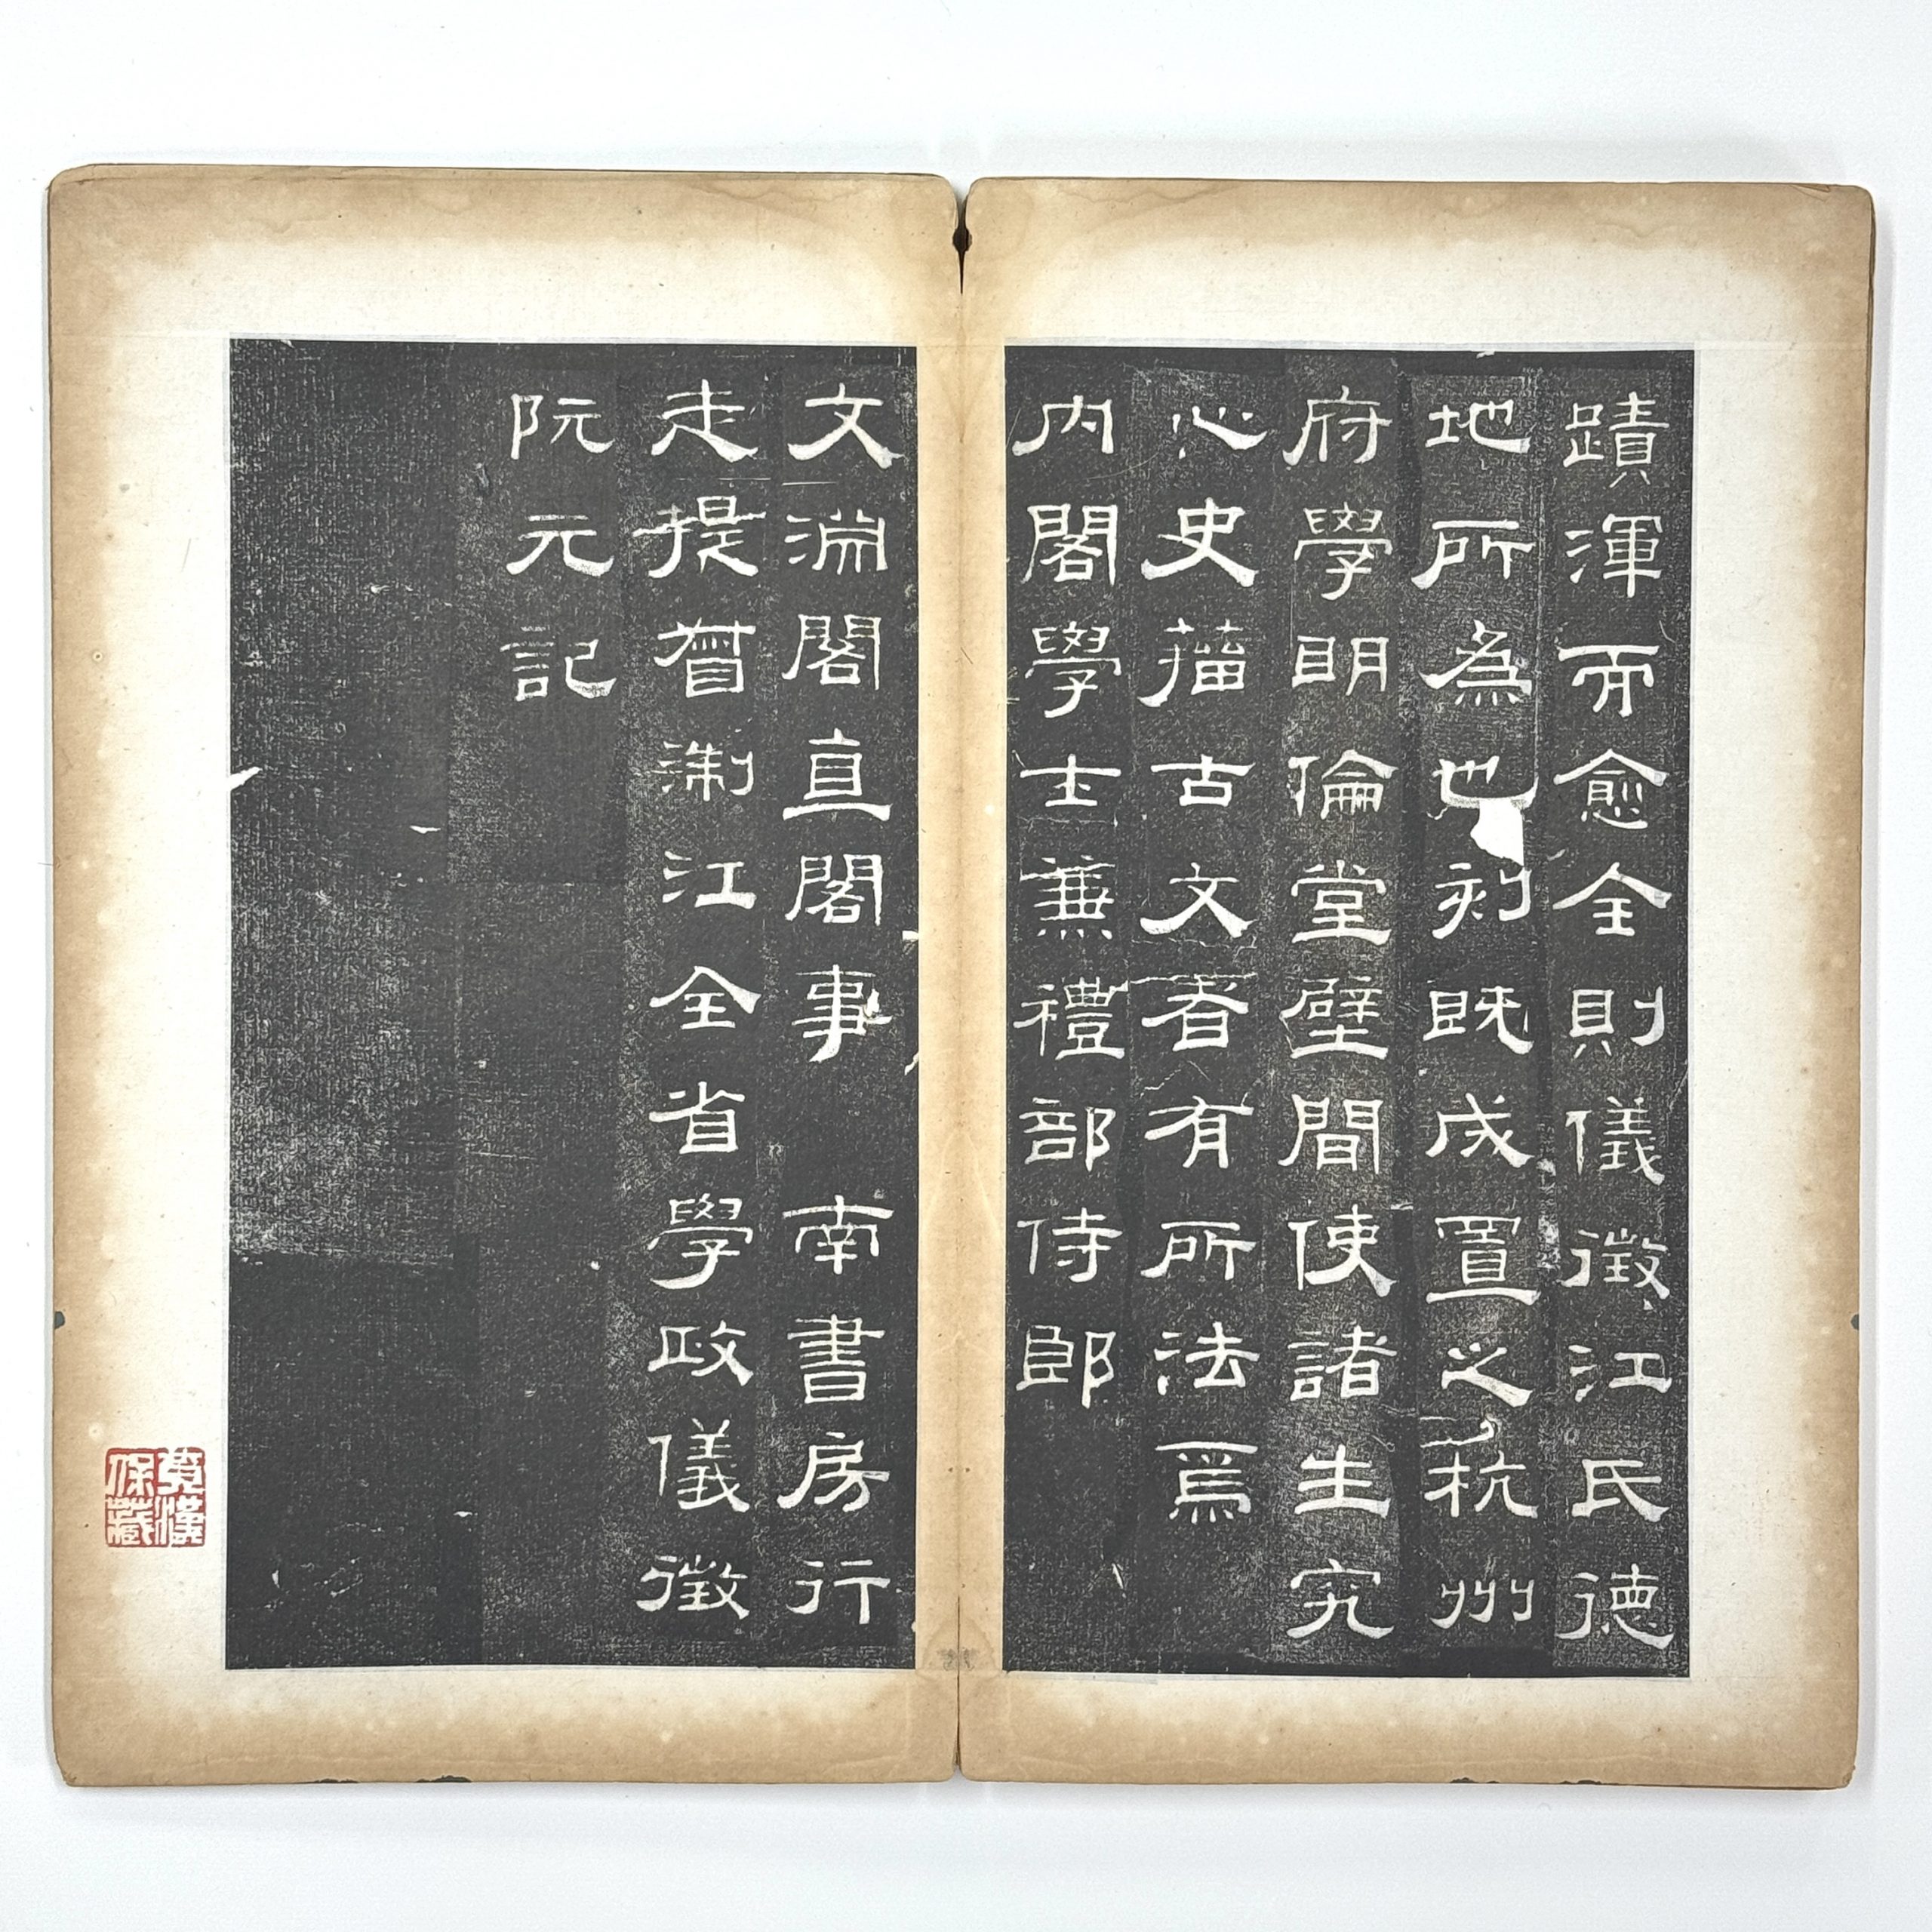 蹟渾而愈全則儀徵江民德
地所為也刻既成置之杭州
府學眀倫堂壁間使諸生究
心史籀古文者有所法焉
内閣學士兼禮部侍郎
文淵閣直閣事 南書房行
走提督淛江全省學政儀徵
阮元記
漢
保藏